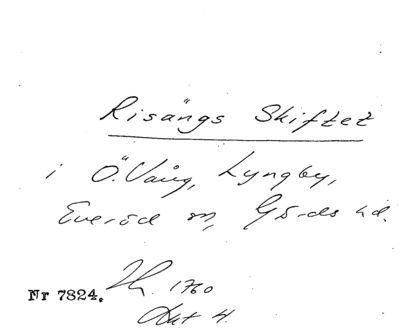 Risängs Skiftet
i Ö. Vång, Lyngby,
Everöd sn, Gärds hd.
1760
Akt 4
Nr 7824.